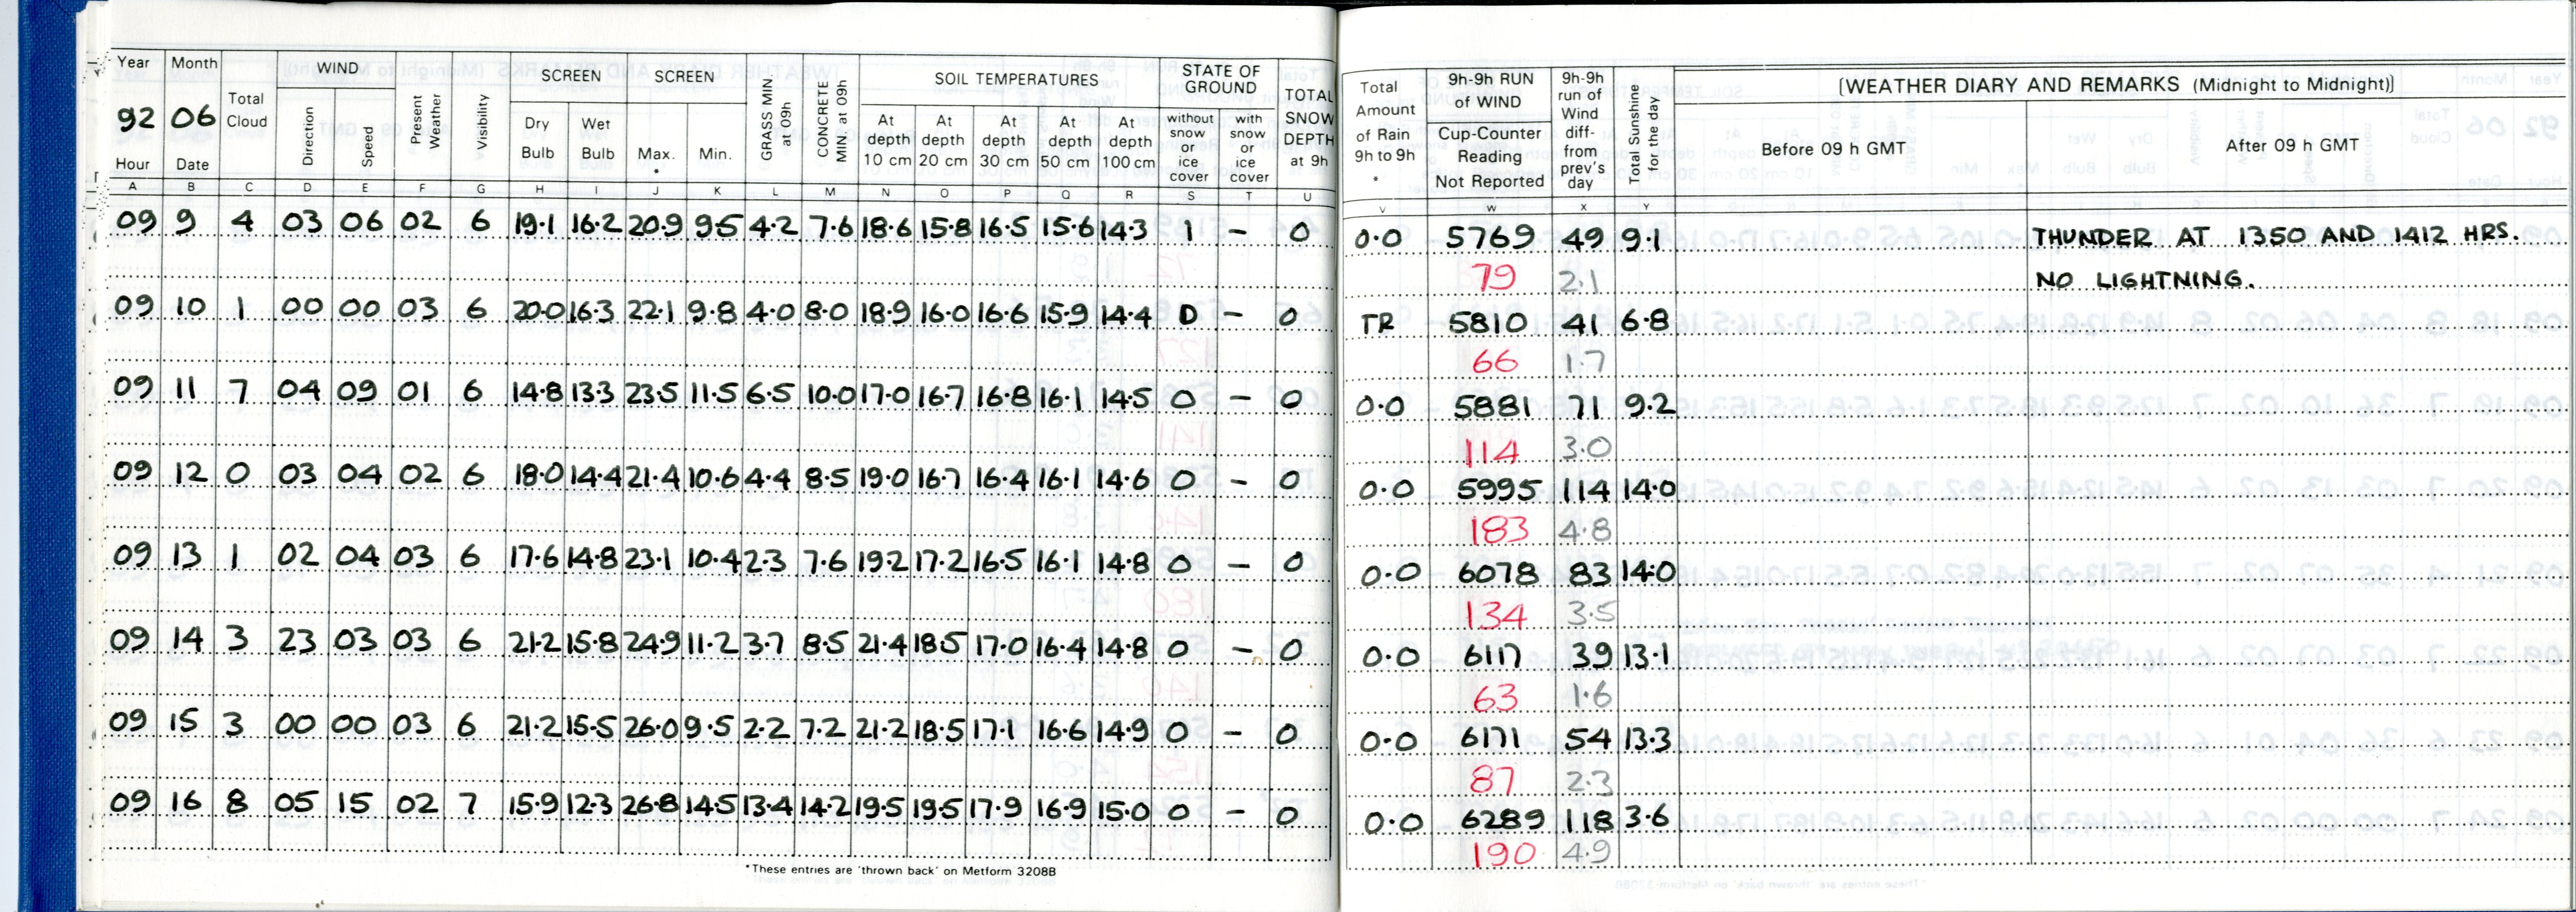 Year Month Total Cloud WIND Present Weather Visibility SCREEN SCREEN GRASS MIN at 09h CONCRETE MIN at 09h SOIL TEMPERATURES STATE OF GROUND TOTAL SNOW DEPTH at 9h
92 06 Direction Speed Dry Bulb Wet Bulb Max. * Min. At depth 10 cm At depth 20 cm At depth 30 cm At depth 50 cm At depth 100 cm without snow or ice cover with snow or ice cover
Hour Date
A B C D E F G H I J K L M N O P Q R S T U
09 9 4 03 06 02 6 19.1 16.2 20.9 9.5 4.2 7.6 18.6 15.8 16.5 15.6 14.3 1 – 0
09 10 1 00 00 03 6 20.0 16.3 22.1 9.8 4.0 8.0 18.9 16.0 16.6 15.9 14.4 0 – 0
09 11 7 04 09 01 6 14.8 13.3 23.5 11.5 6.5 10.0 17.0 16.7 16.8 16.1 14.5 0 – 0
09 12 0 03 04 02 6 18.0 14.4 21.4 10.6 4.4 8.5 19.0 16.7 16.4 16.1 14.6 0 – 0
09 13 1 02 04 03 6 17.6 14.8 23.1 10.4 2.3 7.6 19.2 17.2 16.5 16.1 14.8 0 – 0
09 14 3 23 03 03 6 21.2 15.8 24.9 11.2 3.7 8.5 21.4 18.5 17.0 16.4 14.8 0 – 0
09 15 3 00 00 03 6 21.2 15.5 26.0 9.5 2.2 7.2 21.2 18.5 17.1 16.6 14.9 0 – 0
09 16 8 05 15 02 7 15.9 12.3 26.8 14.5 13.4 14.2 19.5 19.5 17.9 16.9 15.0 0 – 0
*These entries are 'thrown back' on Metform 3208B
Total Amount of Rain 9h to 9h * 9h-9h RUN of WIND Cup-Counter Reading Not Reported 9h-9h run of Wind diff- from prev's day Total Sunshine for the day [WEATHER DIARY AND REMARKS (Midnight to Midnight)]
Before 09 h GMT After 09 h GMT
V W X Y
0.0 5769 49 9.1 THUNDER AT 1350 AND 1412 HRS.
79 2.1 NO LIGHTNING.
TR 5810 41 6.8
66 1.7
0.0 5881 71 9.2
114 3.0
0.0 5995 114 14.0
183 4.8
0.0 6078 83 14.0
134 3.5
0.0 6117 39 13.1
63 1.6
0.0 6171 54 13.3
87 2.3
0.0 6289 118 3.6
190 4.9